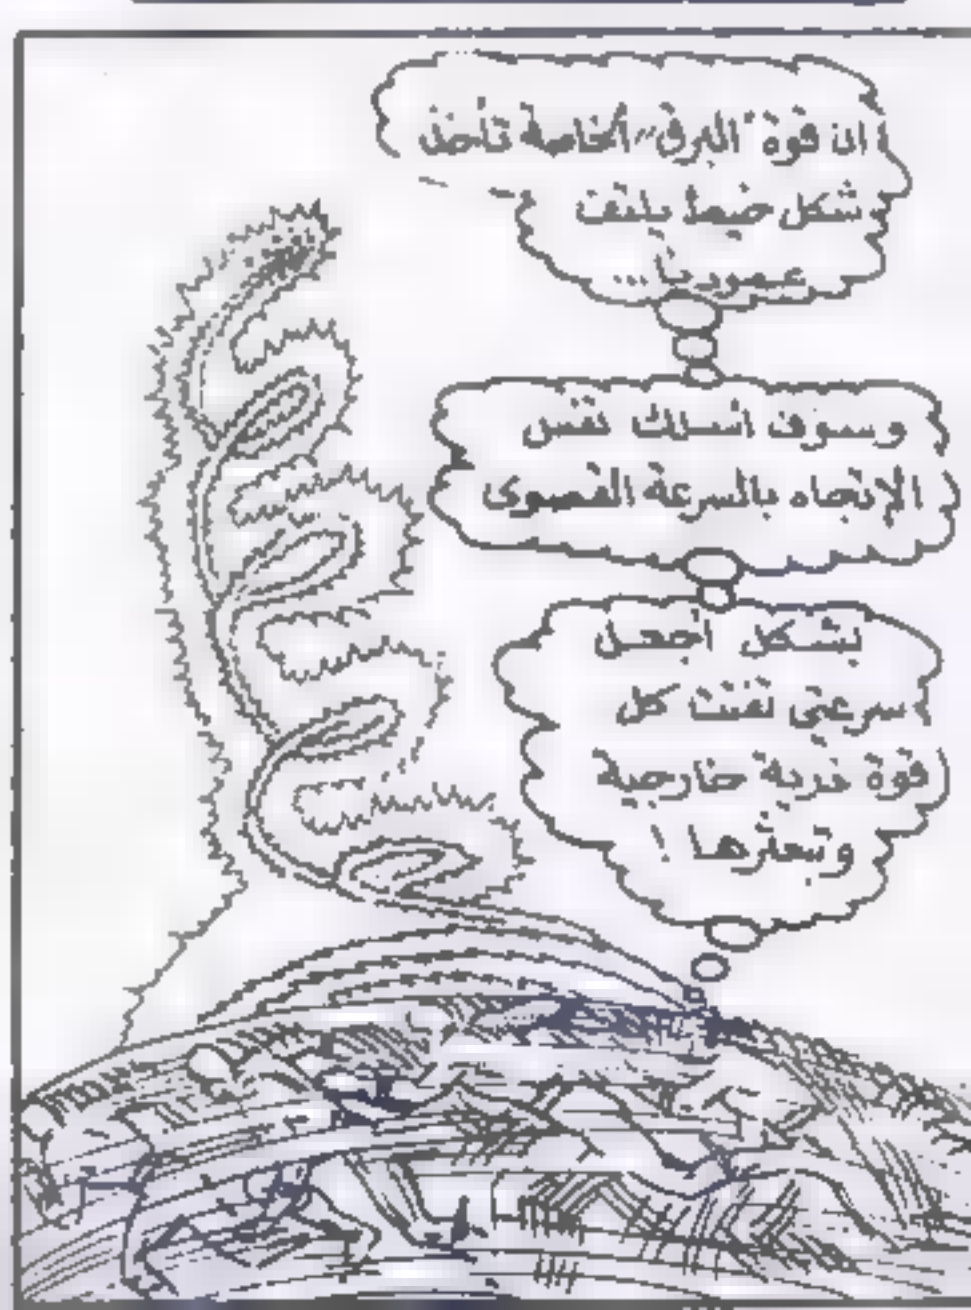 ان قوة "البرق" الخاصة تأخذ
شكل خيط يلتف
عموديا ...
وسوف اسلك نفس
الإتجاه بالسرعة القصوى
بشكل اجعل
سرعتي تفتت كل
قوة ذرية خارجية
وتبعثرها !